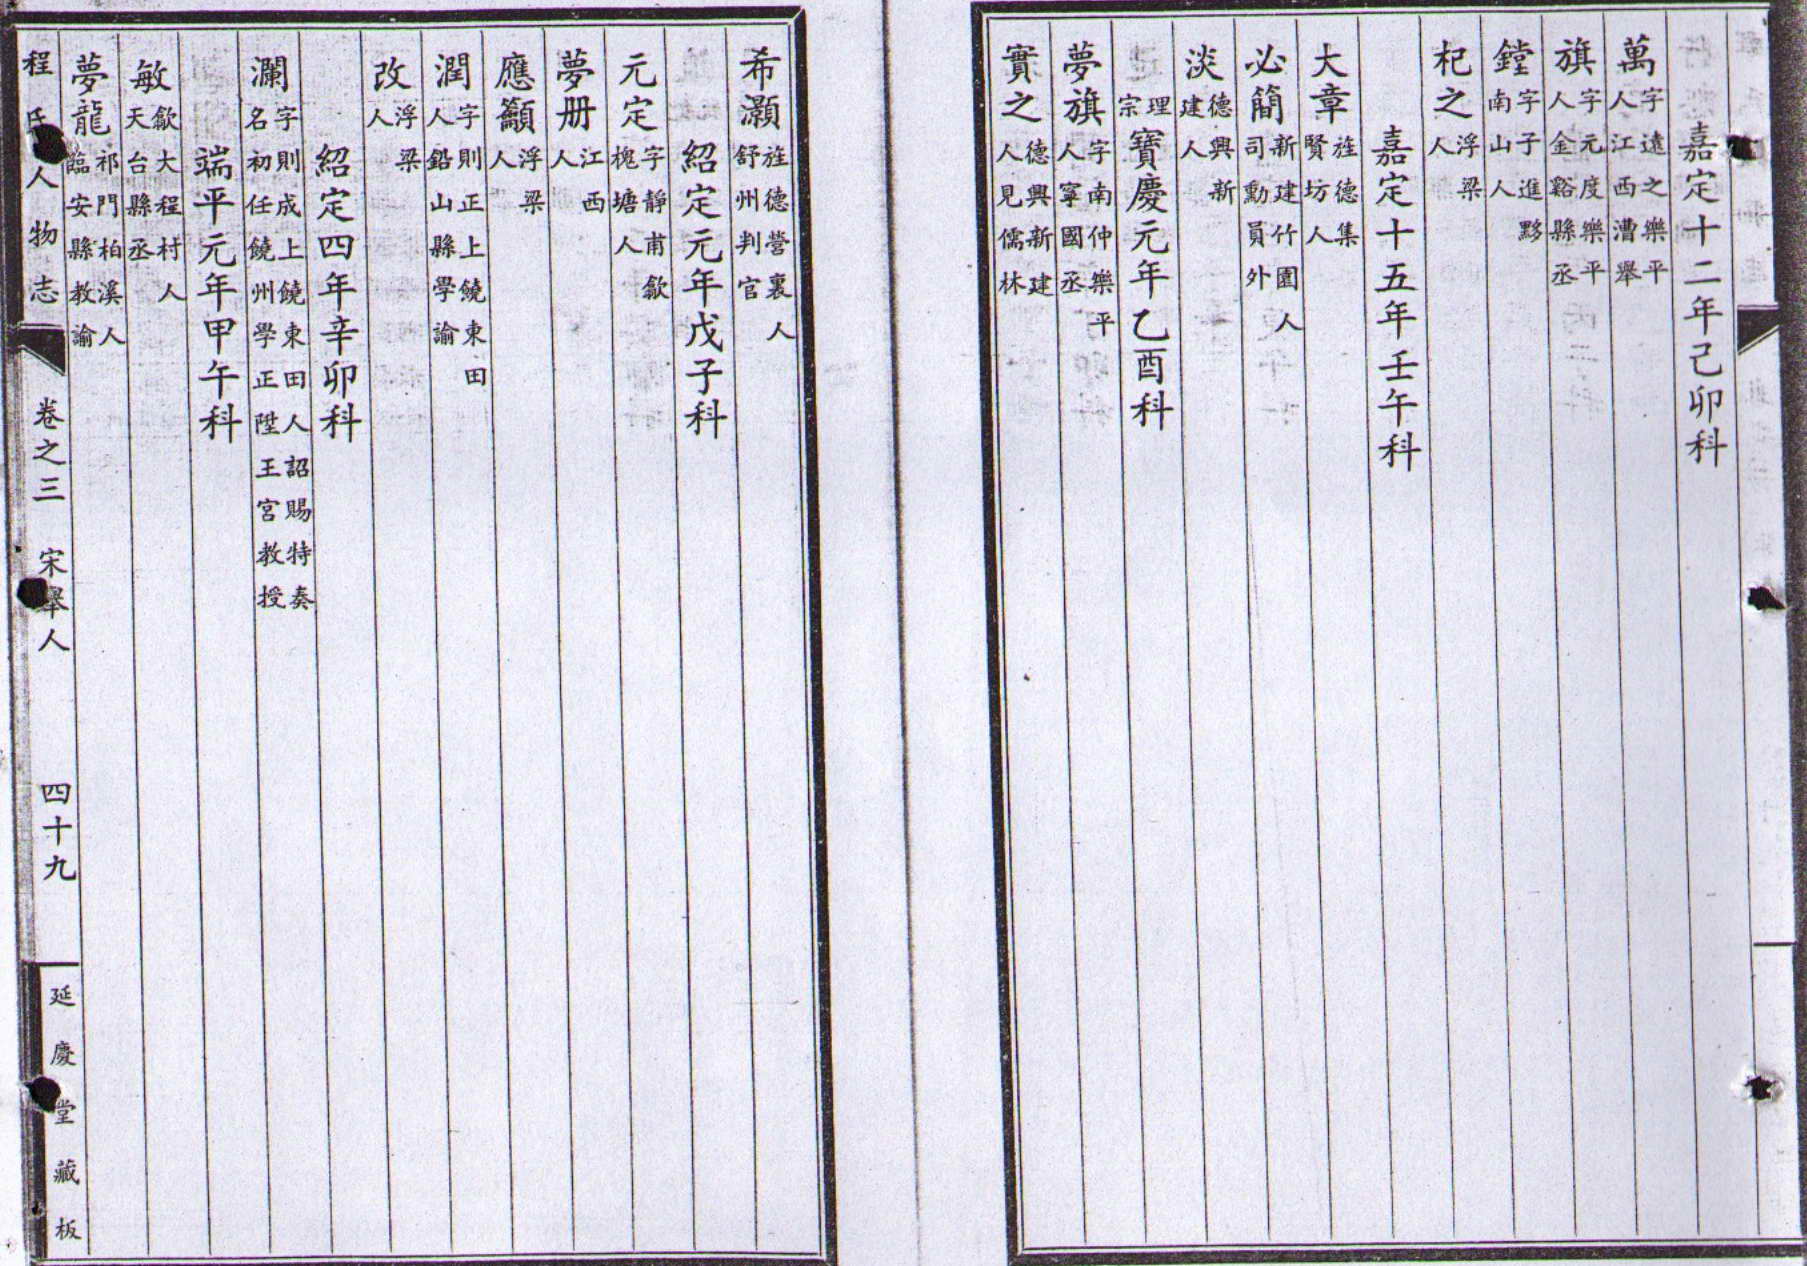 嘉定十二年己卯科
萬 字遠之樂平人江西漕舉
旗 字元度樂平人金谿縣丞
鏜 字子進黟南山人
杞之 浮梁人
嘉定十五年壬午科
大章 旌德集賢坊人
必簡 新建竹園人司勳員外
淡 德興新建人
理宗寶慶元年乙酉科
夢旗 字南仲樂平人寧國丞
實之 德興新建人見儒林
希灝 旌德營裏人舒州判官
紹定元年戊子科
元定 字靜甫歙槐塘人
夢册 江西人
應籲 浮梁人
潤 字則正上饒東田人鉛山縣學諭
改 浮梁人
紹定四年辛卯科
瀾 字則成上饒東田人詔賜特奏名初任饒州學正陞王宮教授
端平元年甲午科
敏 歙大程村人天台縣丞
夢龍 祁門柏溪人臨安縣教諭
程氏人物志 卷之三 宋舉人 四十九 延慶堂藏板